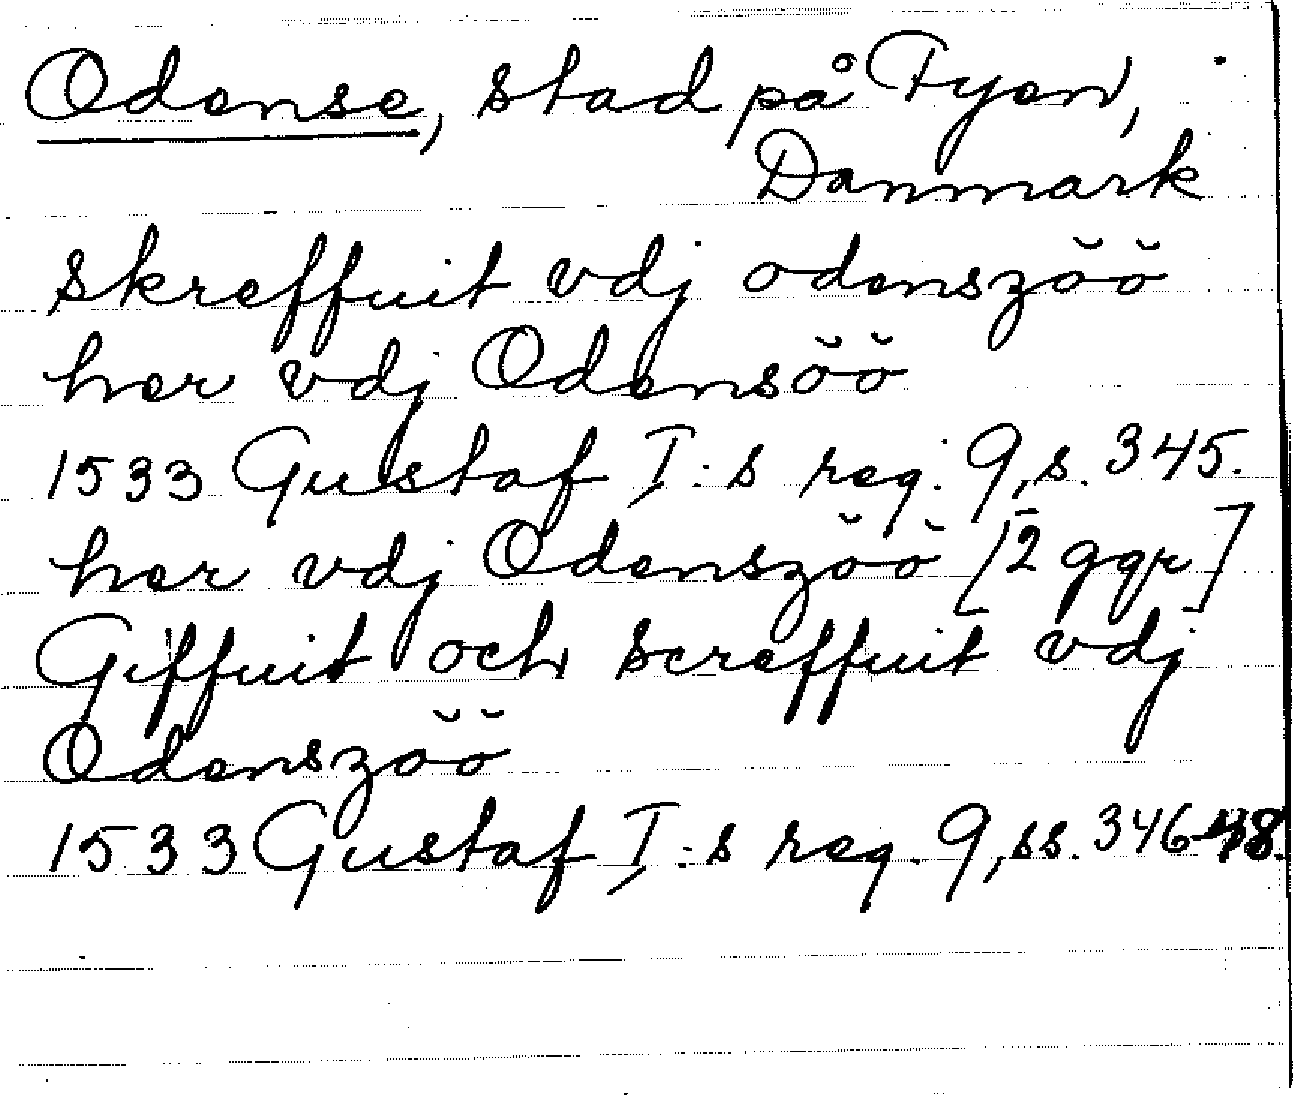 Odense, stad på Fyen,
Danmark
skreffuit vdj odenszŏŏ
her vdj Odensŏŏ
1533 Gustaf I:s reg. 9, s. 345.
her vdj Odenszŏŏ [2 ggr]
Giffuit och screffuit vdj
Odenszŏŏ
1533 Gustaf I:s reg. 9, ss. 346-48.